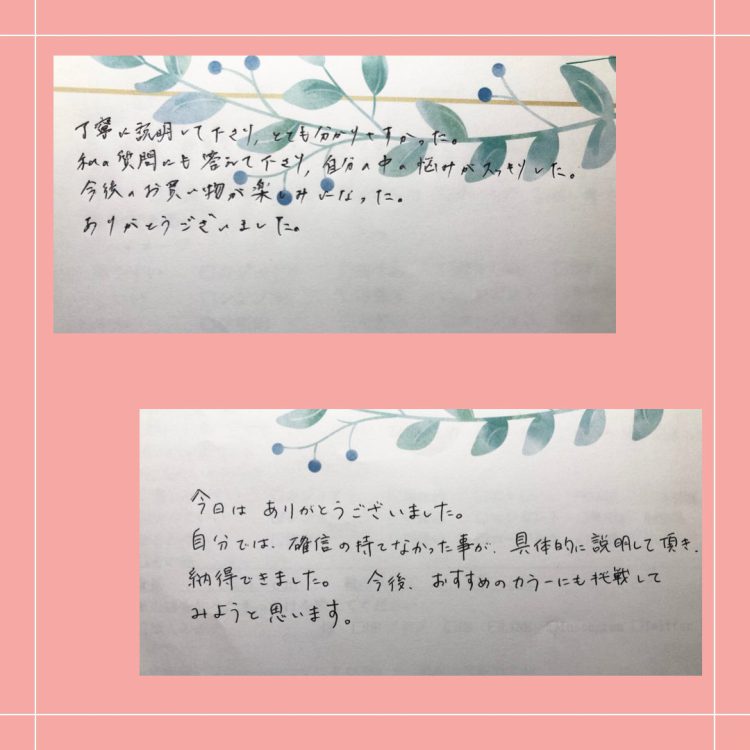 丁寧に説明して下さり、とても分かりやすかった。
私の質問にも答えて下さり、自分の中の悩みがスッキリした。
今後のお買い物が楽しみになった。
ありがとうございました。
今日は ありがとうございました。
自分では、確信の持てなかった事が、具体的に説明して頂き、
納得できました。 今後、おすすめのカラーにも挑戦して
みようと思います。